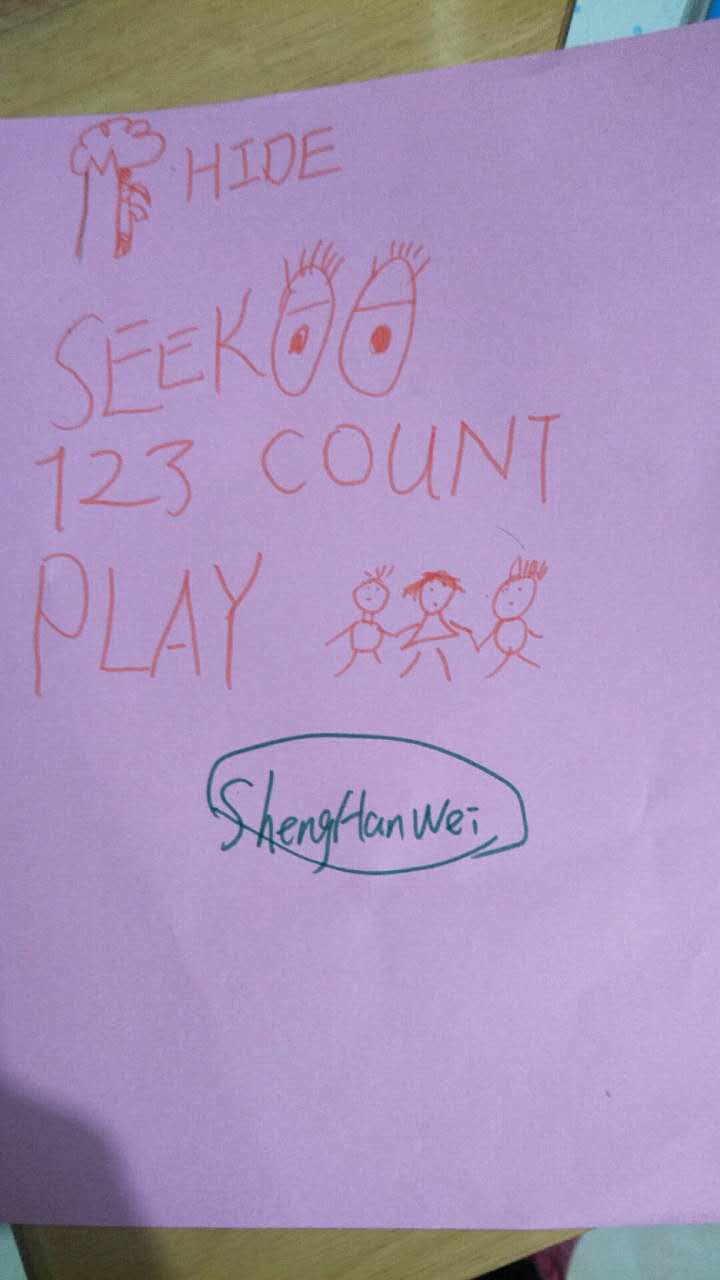 HIDE
SEEK
123 COUNT
PLAY
ShengHanWei